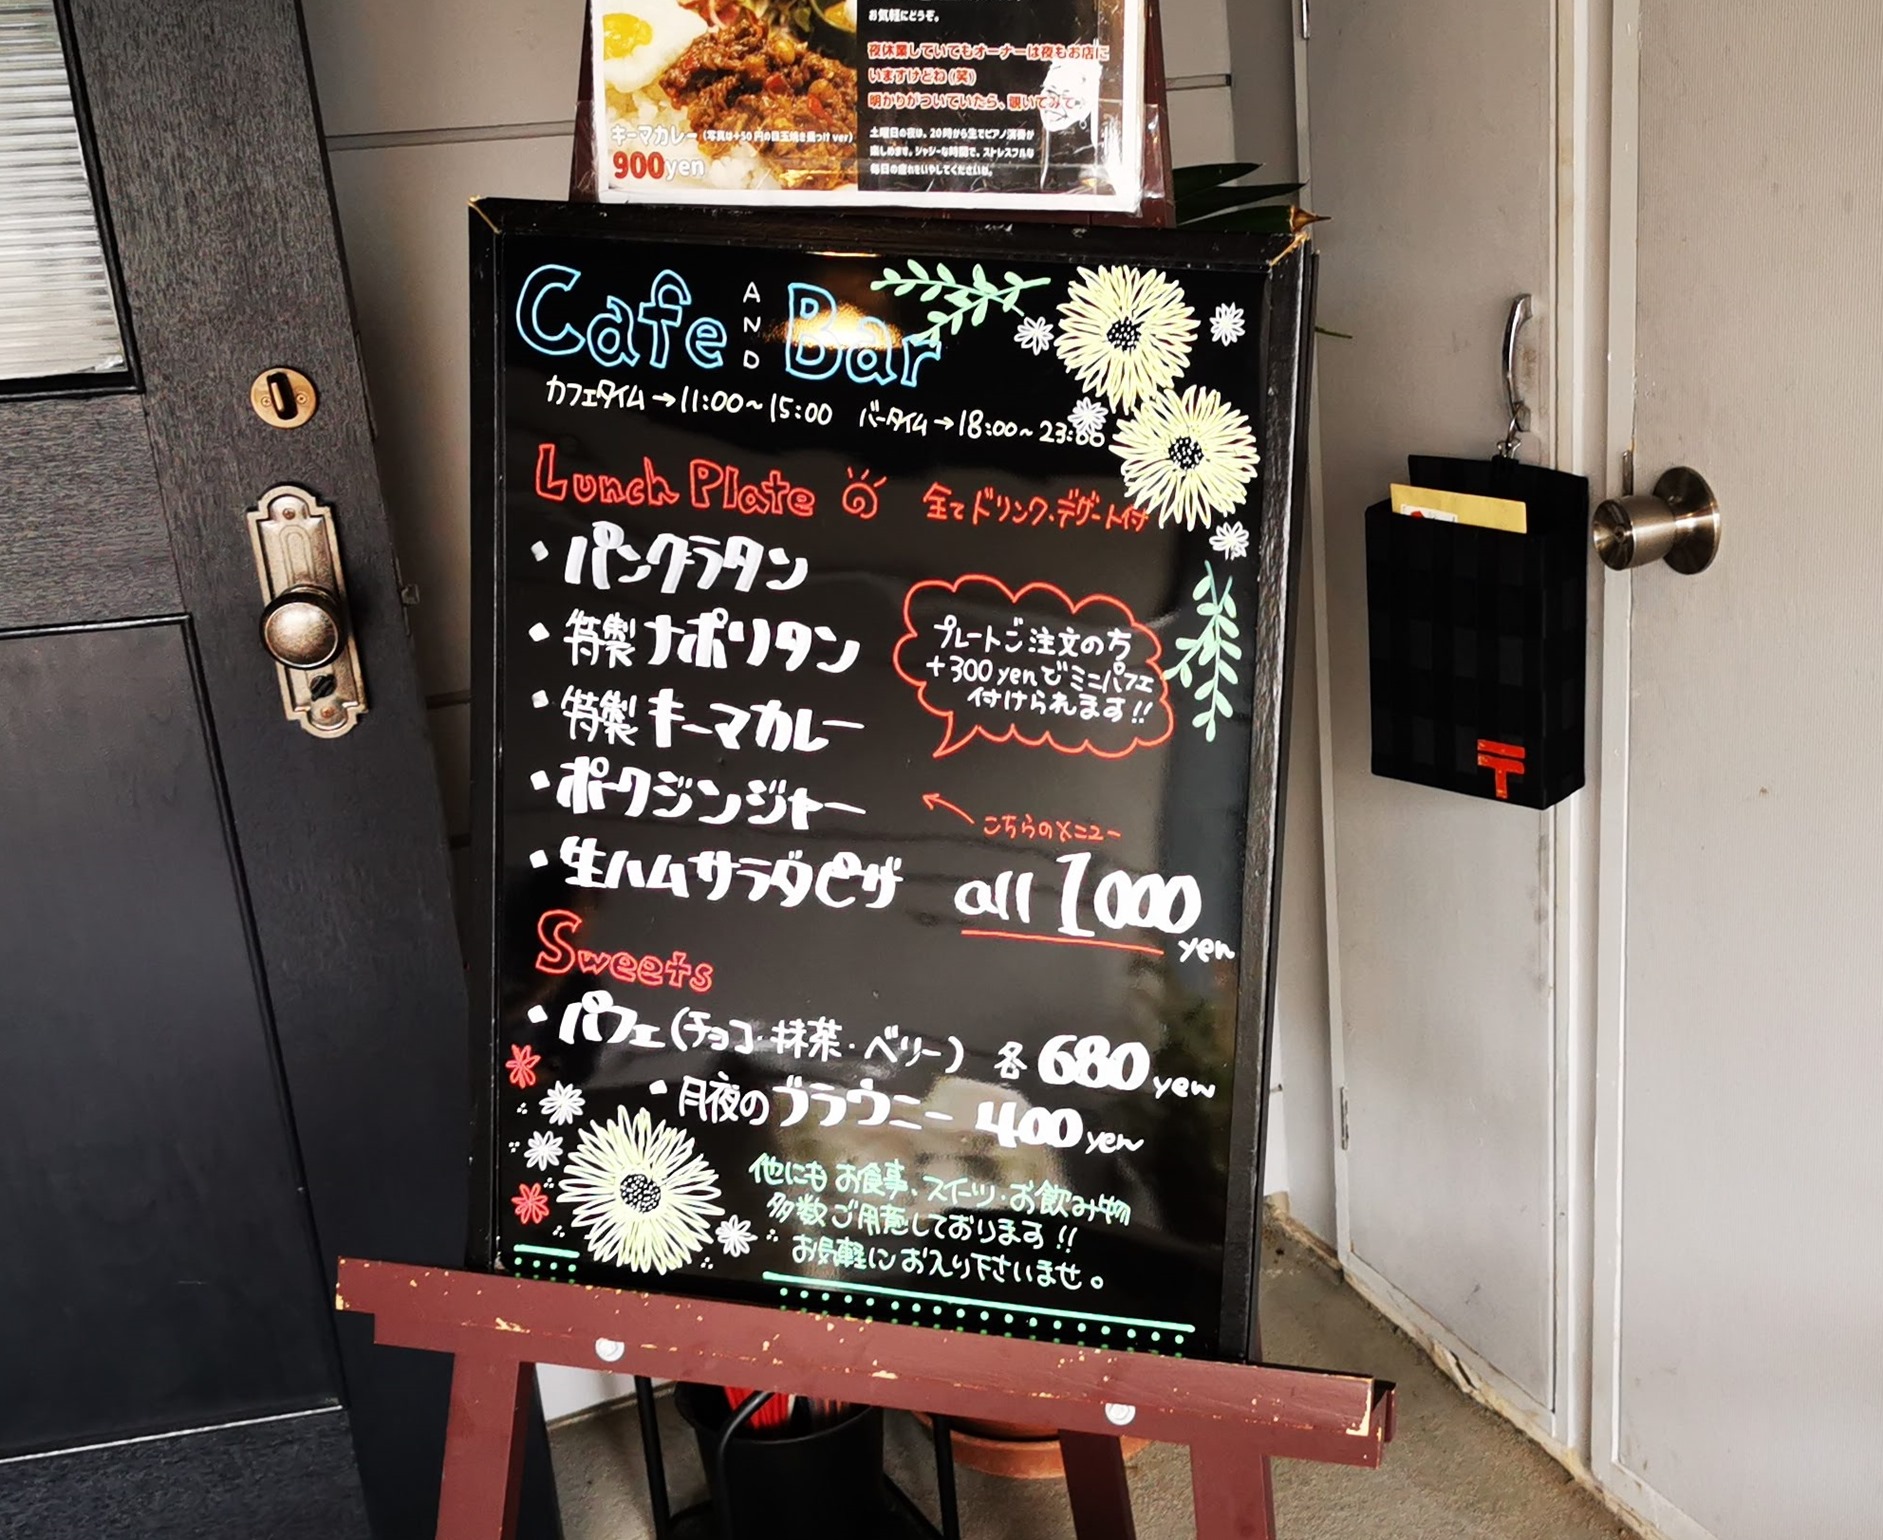 お気軽にどうぞ。
夜休業していてもオーナーは夜もお店に
いますけどね(笑)
明かりがついていたら、覗いてみて
土曜日の夜は、20時から生でピアノ演奏が
楽しめます。ジャジーな時間で、ストレスフルな
毎日の疲れをいやしてくださいね。
キーマカレー(写真は+50円の目玉焼き乗っけver)
900yen
Cafe AND Bar
カフェタイム→11:00~15:00 バータイム→18:00~23:00
Lunch Plate 全てドリンク、デザート付
・パングラタン
・特製ナポリタン
・特製キーマカレー
・ポークジンジャー
・生ハムサラダピザ
プレートご注文の方
+300yenでミニパフェ
付けられます!!
こちらのメニュー
all 1000 yen
Sweets
・パフェ(チョコ・抹茶・ベリー) 各680yen
・月夜のブラウニー 400yen
他にもお食事、スイーツ・お飲み物
多数ご用意しております!!
お気軽にお入り下さいませ。
〒